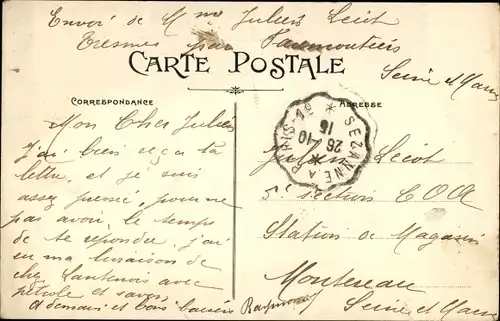 Envoi de Mme Julien Lécot
Tresmes par Faremoutiers
Seine et Marne
CARTE POSTALE
CORRESPONDANCE
ADRESSE
Mon Cher Julien
j'ai bien reçu ta
lettre, et je suis
assez pressé, pour ne
pas avoir le temps
de te repondre, j'ai
eu ma livraison de
chez Lantenois avec
pétrole et savon,
A demain et bons baisers Raymond
SEZANNE A PARIS 1°
26-10
15
Julien Lécot
5e section COA
Station de Magasin
Montereau
Seine et Marne